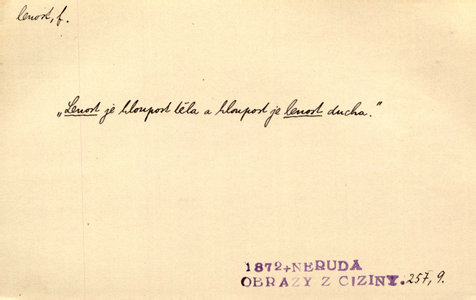 lenost, f.
„Lenost je hloupost těla a hloupost je lenost ducha.“
1872+NERUDA
OBRAZY Z CIZINY. 257, 9.